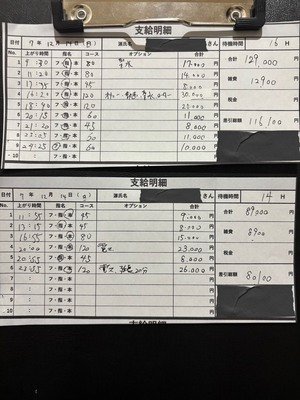 支給明細
日付 7年 12月 日(日) 源氏名 さん 待機時間 16 H
No. 上がり時間 指名 コース オプション 合計 合計 129,000
1 9:30 フ・指・本 80 17,000 円
2 11:20 フ・指・本 80 14,000 円 雑費 12900
3 13:35 フ・指・本 95 8,000 円
4 16:20 フ・指・本 120 30,000 円 税金
5 18:40 フ・指・本 120
6 20:15 フ・指・本 60 11,000 円 差引総額 116100
7 21:20 フ・指・本 45 8,000 円
8 フ・指・本 50 11,000 円
9 24:25 フ・指・本 60 10,000 円
10 : フ・指・本
支給明細
日付 7年 12月 14日(日) 源氏名 さん 待機時間 14 H
No. 上がり時間 指名 コース オプション 合計 合計 89000
1 11:55 フ・指・本 45 9,000 円
2 13:15 フ・指・本 45 8,000 円 雑費 8900
3 16:55 フ・指・本 80 15,000 円
4 フ・指・本 120 23,000 円 税金
5 20:55 フ・指・本 45 8,000 円
6 23:55 フ・指・本 120 20分 26,000 円 差引総額 80100
7 : フ・指・本
8 : フ・指・本
9 : フ・指・本
10 : フ・指・本
支給明細